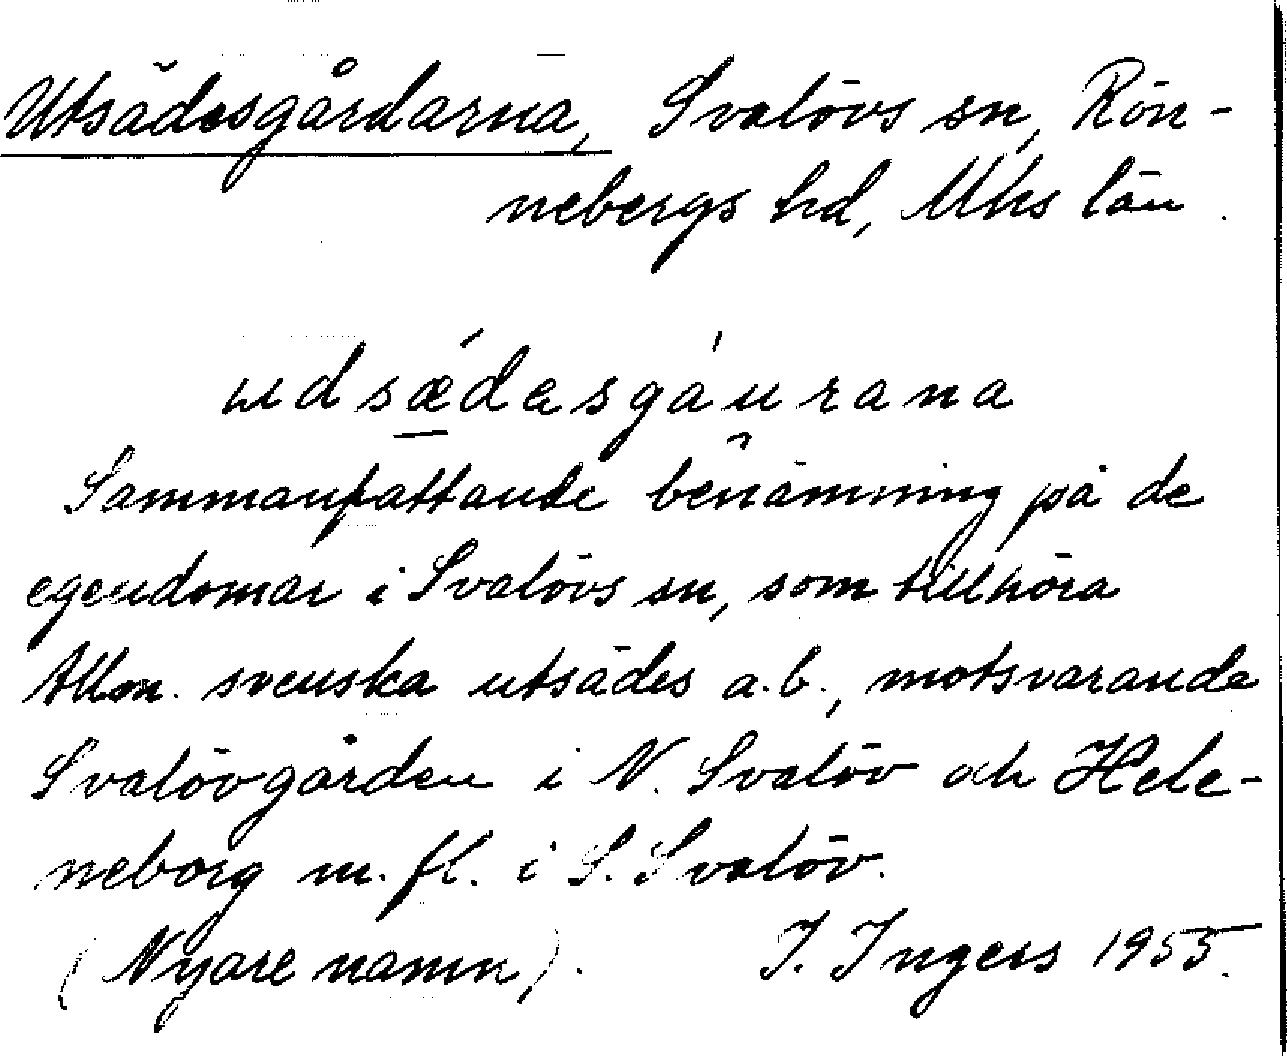 Utsädesgårdarna, Svalövs sn, Rön-
nebergs hd, Mhs län.
udsǽdesgáurana
Sammanfattande benämning på de
egendomar i Svalövs sn, som tillhöra
Allm. svenska utsädes a.b., motsvarande
Svalövgården i N. Svalöv och Hele-
neborg m. fl. i S. Svalöv.
(Nyare namn). I. Ingers 1955.